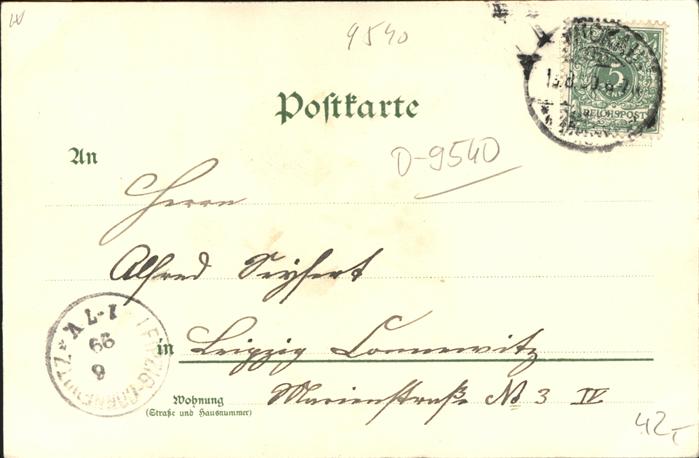 9540
5
REICHSPOST
Postkarte
An
D-9540
Herrn
Alfred Seyfert
in Leipzig Connewitz
Wohnung
(Straße und Hausnummer)
Marienstraße No 3 IV
LEIPZIG-CONNEWITZ
99
42,-